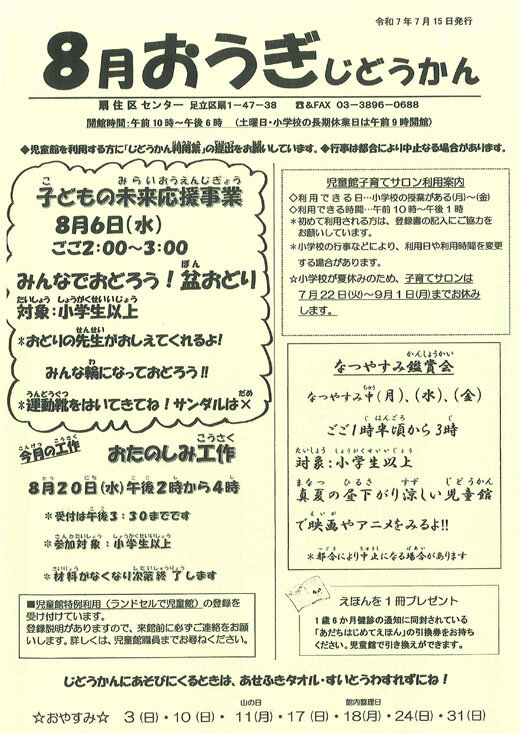 令和7年7月15日発行
8月おうぎじどうかん
扇住区センター 足立区扇1−47−38 ☎&FAX 03−3896−0688
開館時間:午前10時〜午後6時 (土曜日・小学校の長期休業日は午前9時開館)
◆児童館を利用する方に「じどうかん利用票」の提出をお願いしています。◆行事は都合により中止なる場合があります。
子どもの未来応援事業
8月6日(水)
ごご2:00〜3:00
みんなでおどろう!盆おどり
対象:小学生以上
*おどりの先生がおしえてくれるよ!
みんな輪になっておどろう!!
*運動靴をはいてきてね!サンダルは×
今月の工作 おたのしみ工作
8月20日(水)午後2時から4時
*受付は午後3:30までです
*参加対象:小学生以上
*材料がなくなり次第終了します
■児童館特例利用(ランドセルで児童館)の登録を
受け付けています。
登録説明がありますので、来館前に必ずご連絡をお願
いします。詳しくは、児童館職員までお尋ねください。
児童館子育てサロン利用案内
◇利用できる日…小学校の授業がある(月)〜(金)
◇利用できる時間…午前10時〜午後1時
*初めて利用される方は、登録書の記入にご協力を
お願いしています。
*小学校の行事などにより、利用日や利用時間を変更
する場合があります。
☆小学校が夏休みのため、子育てサロンは
7月22日(火)〜9月1日(月)までお休み
します。
なつやすみ鑑賞会
なつやすみ中(月)、(水)、(金)
ごご1時半頃から3時
対象:小学生以上
真夏の昼下がり涼しい児童館
で映画やアニメをみるよ!!
*都合により中止になる場合があります
えほんを1冊プレゼント
1歳6か月健診の通知に同封されている
「あだちはじめてえほん」の引換券をお持ち
ください。児童館で引き換えができます。
じどうかんにあそびにくるときは、あせふきタオル・すいとうわすれずにね!
山の日 館内整理日
☆おやすみ☆ 3(日)・10(日)・11(月)・17(日)・18(月)・24(日)・31(日)